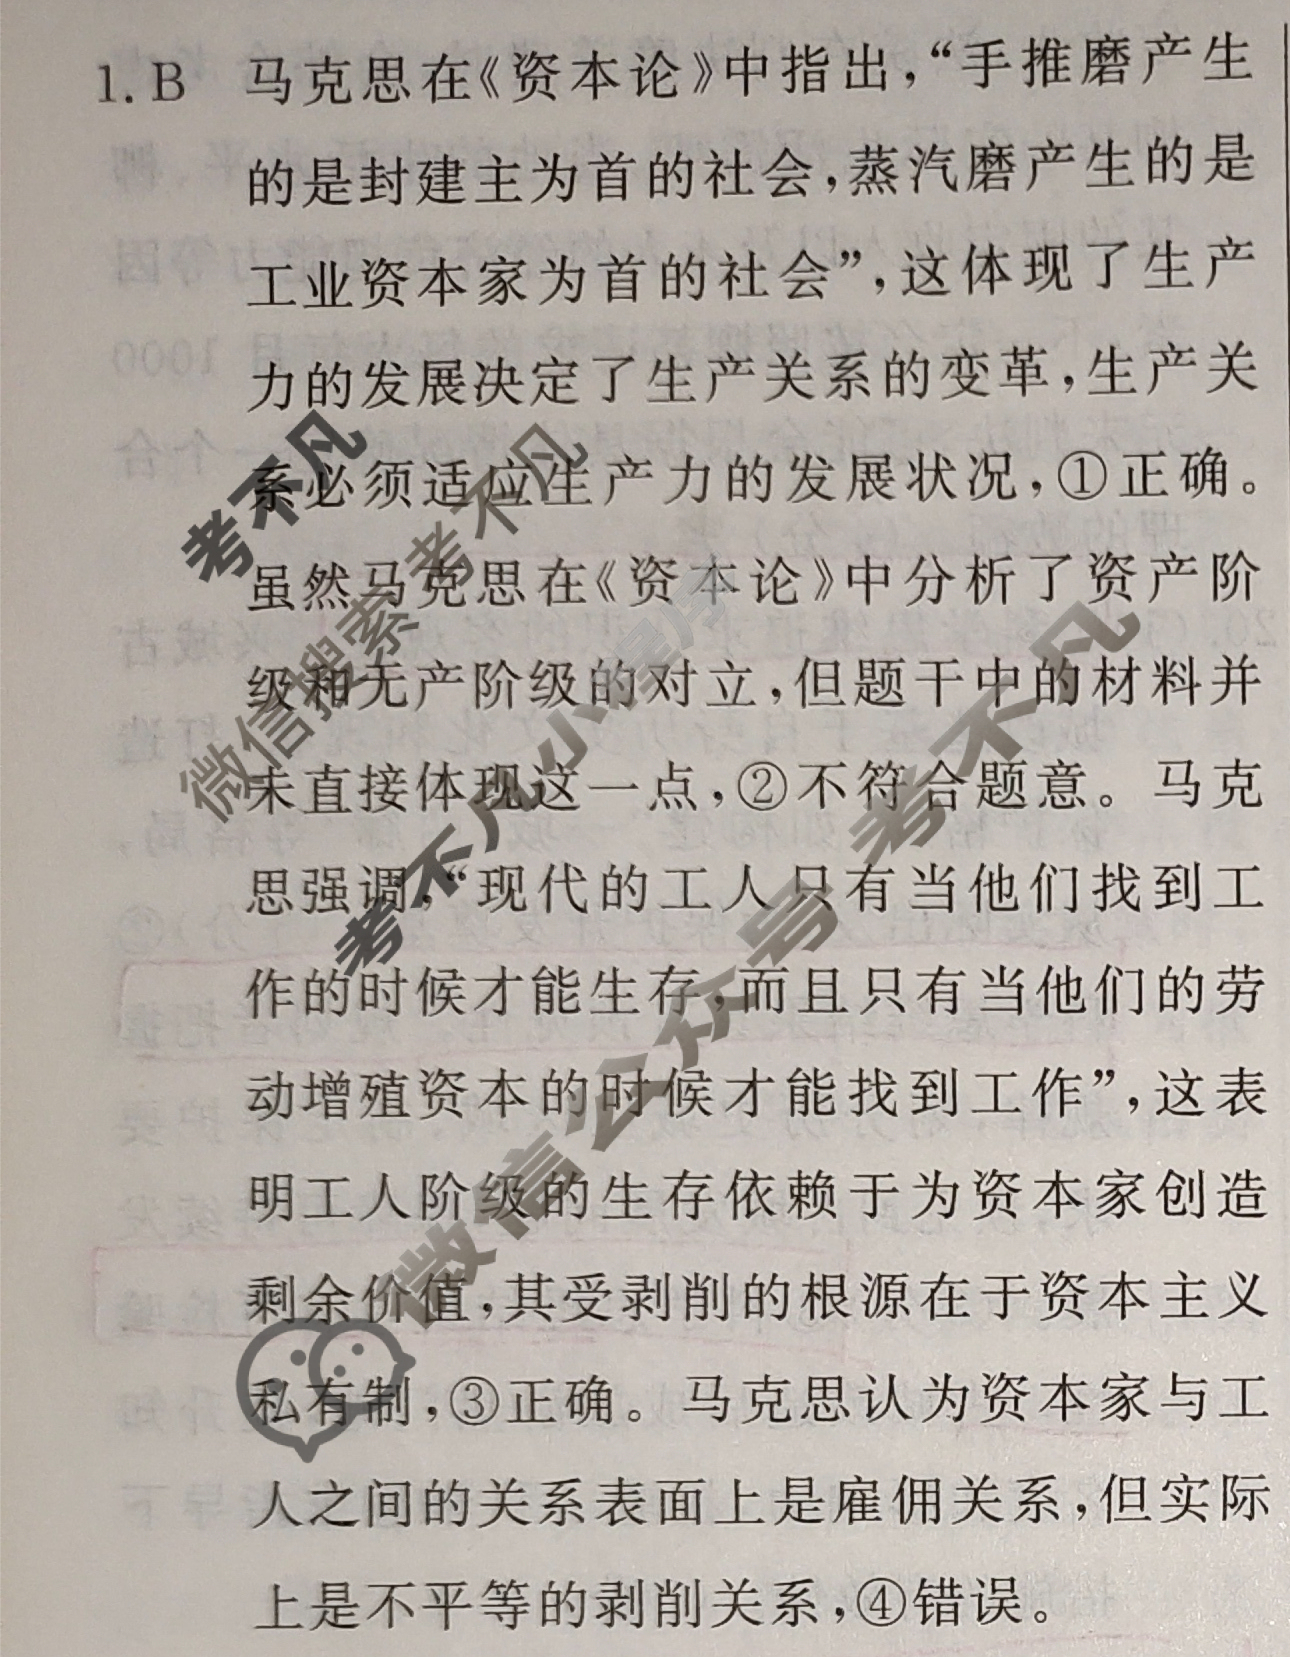 1. B 马克思在《资本论》中指出，“手推磨产生
的是封建主为首的社会，蒸汽磨产生的是
工业资本家为首的社会”，这体现了生产
力的发展决定了生产关系的变革，生产关
系必须适应生产力的发展状况，①正确。
虽然马克思在《资本论》中分析了资产阶
级和无产阶级的对立，但题干中的材料并
未直接体现这一点，②不符合题意。马克
思强调，“现代的工人只有当他们找到工
作的时候才能生存，而且只有当他们的劳
动增殖资本的时候才能找到工作”，这表
明工人阶级的生存依赖于为资本家创造
剩余价值，其受剥削的根源在于资本主义
私有制，③正确。马克思认为资本家与工
人之间的关系表面上是雇佣关系，但实际
上是不平等的剥削关系，④错误。
考不凡
微信搜索 考不凡
考不凡小程序
微信公众号 考不凡